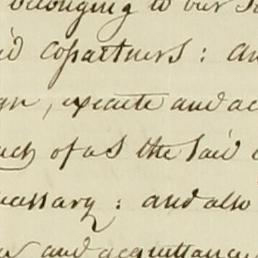 belonging to our
copartners : an
execute and ac
of us the said
: and also
and acquittanc